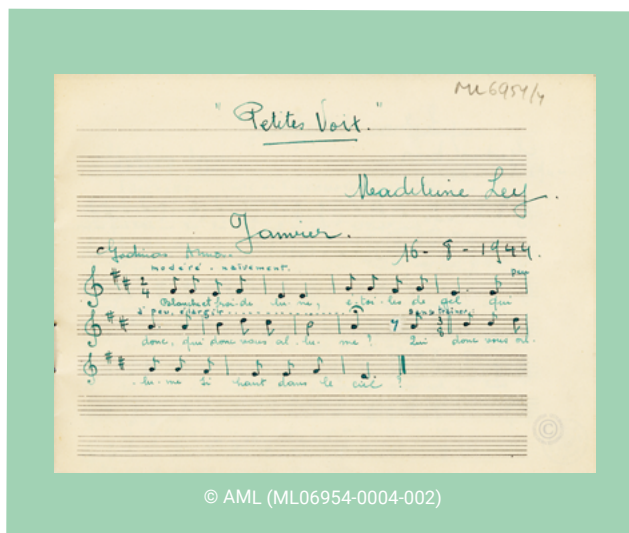 ML 6954/4
"Petites Voix."
Madeleine Ley.
Janvier.
16-8-1944.
modéré. naïvement.
2
4
Blanche et froide lu-ne, é-toi-les de gel qui
peu
à peu. élargir
sans traîner.
donc, qui donc vous al-lu-me? Qui donc vous al-
3
8
lu-me si haut dans le ciel?
©
© AML (ML06954-0004-002)